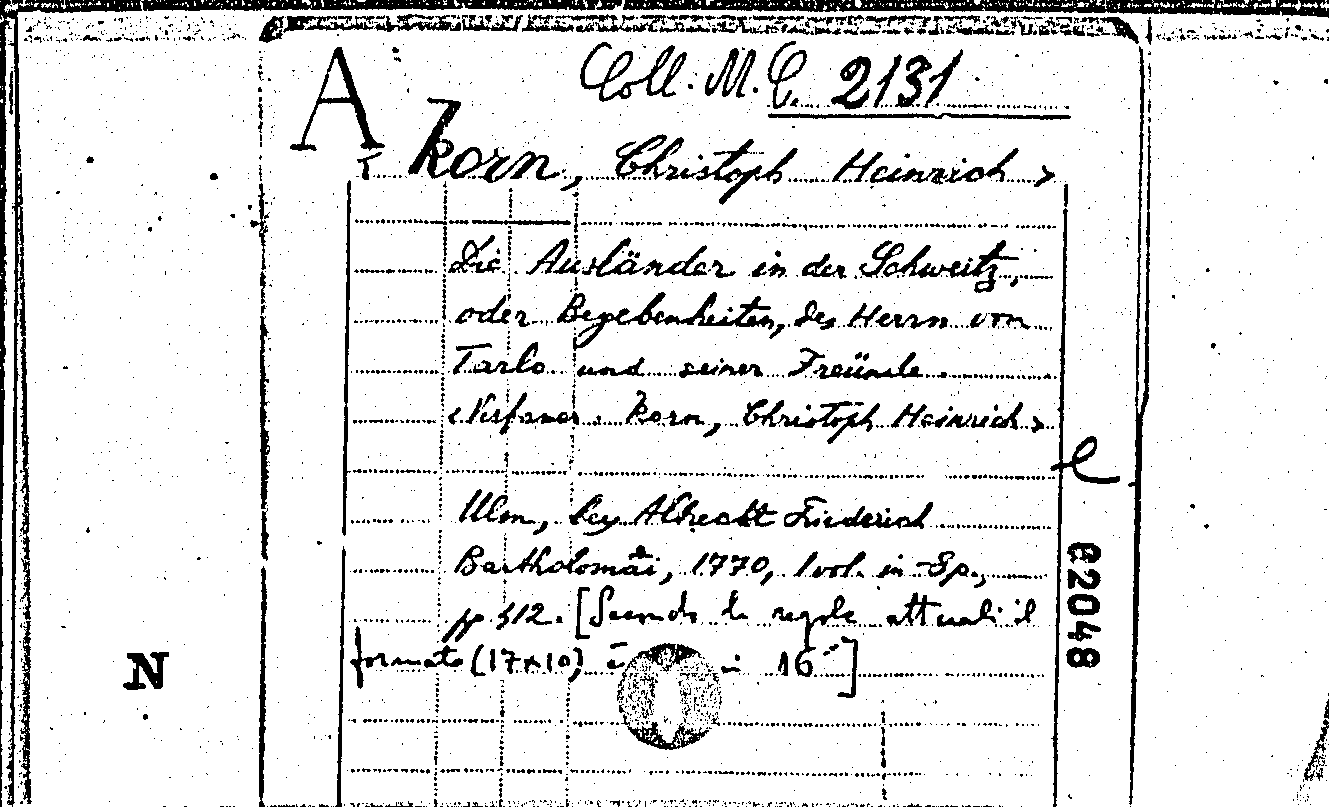 A
Coll. M. C. 2131
< Korn, Christoph Heinrich >
Die Ausländer in der Schweitz,
oder Begebenheiten, des Herrn von
Tarlo und seiner Freünde.
<Verfasser. Korn, Christoph Heinrich>
e
Ulm, bey Albrecht Friederich
Bartholomäi, 1770, 1 vol. in -8p.,
pp 512. [Secondo le regole attuali il
formato (17×10) è in 16°]
02048
N